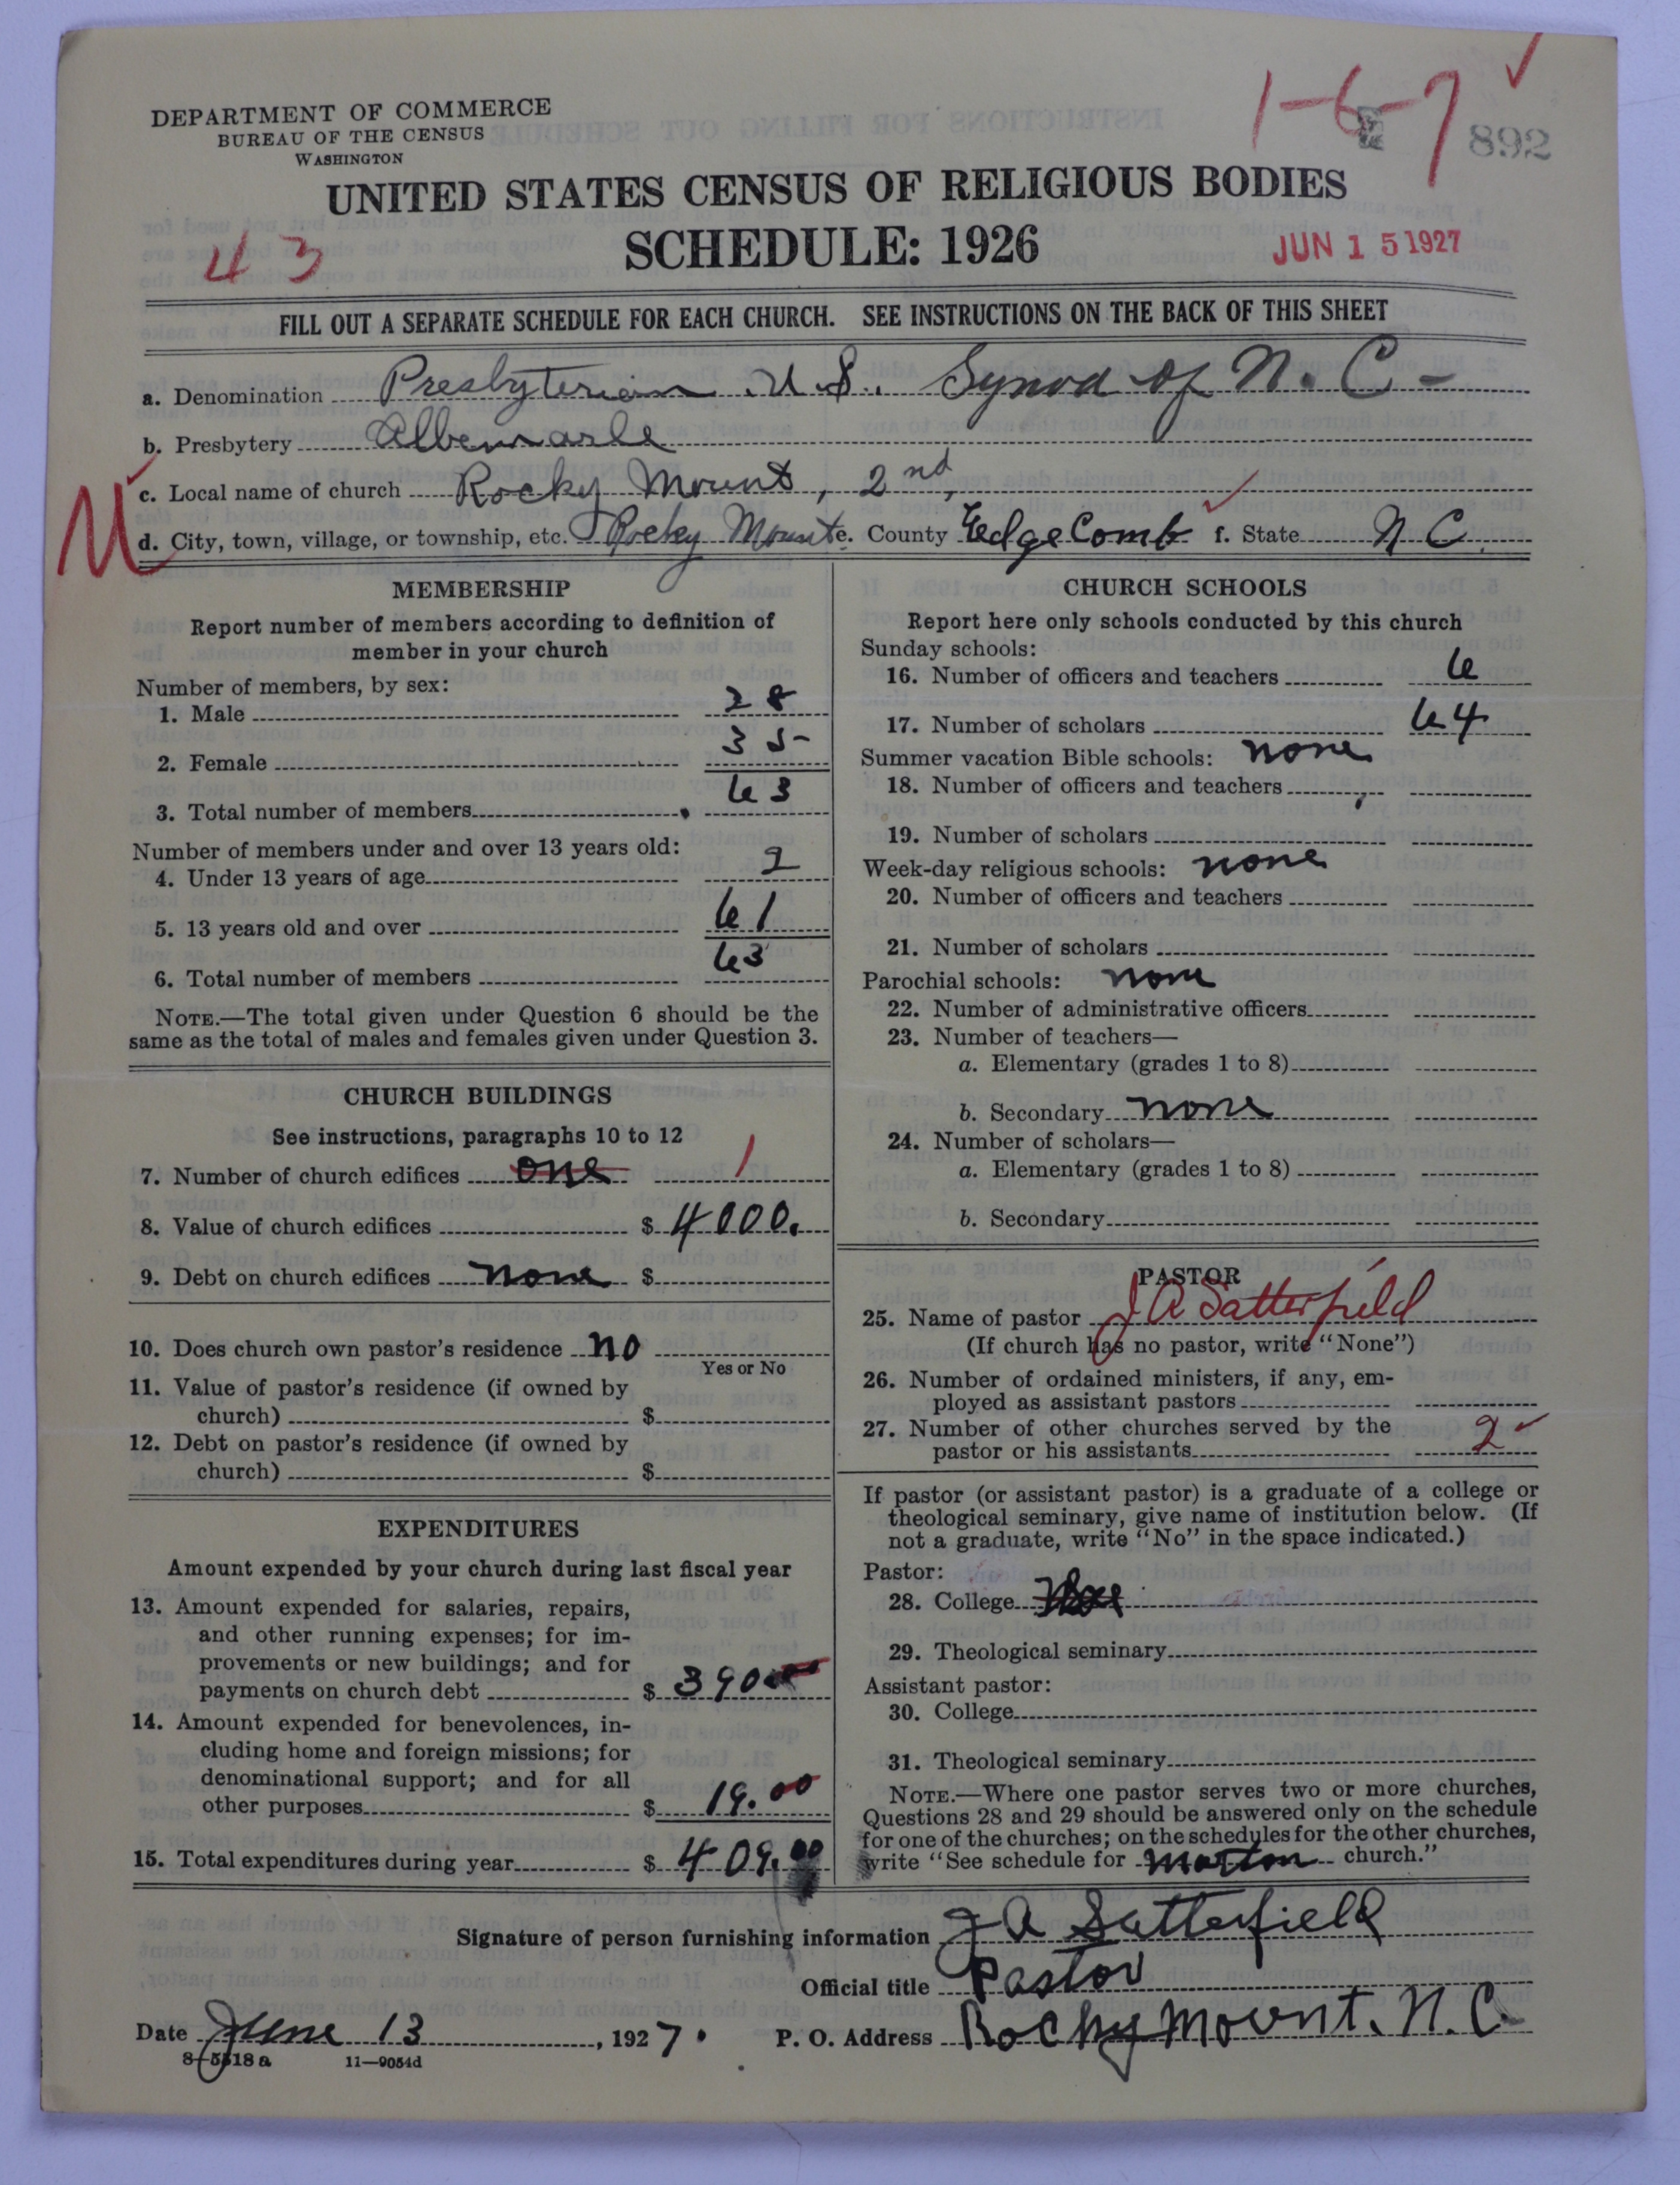 1-6-7 ✓
892
DEPARTMENT OF COMMERCE
BUREAU OF THE CENSUS
WASHINGTON
UNITED STATES CENSUS OF RELIGIOUS BODIES
SCHEDULE: 1926
43
JUN 15 1927
FILL OUT A SEPARATE SCHEDULE FOR EACH CHURCH. SEE INSTRUCTIONS ON THE BACK OF THIS SHEET
a. Denomination Presbyterian U.S. Synod of N. C-
b. Presbytery Albemarle
c. Local name of church Rocky Mount, 2nd
d. City, town, village, or township, etc. Rocky Mount e. County EdgeComb f. State N C.
MEMBERSHIP
Report number of members according to definition of
member in your church
Number of members, by sex:
1. Male 28
2. Female 35
3. Total number of members 63
Number of members under and over 13 years old:
4. Under 13 years of age 2
5. 13 years old and over 61
6. Total number of members 63
NOTE.—The total given under Question 6 should be the
same as the total of males and females given under Question 3.
CHURCH BUILDINGS
See instructions, paragraphs 10 to 12
7. Number of church edifices one 1
8. Value of church edifices $ 4000.
9. Debt on church edifices none $
10. Does church own pastor's residence no
Yes or No
11. Value of pastor's residence (if owned by
church) $
12. Debt on pastor's residence (if owned by
church) $
EXPENDITURES
Amount expended by your church during last fiscal year
13. Amount expended for salaries, repairs,
and other running expenses; for im-
provements or new buildings; and for
payments on church debt $ 390.00
14. Amount expended for benevolences, in-
cluding home and foreign missions; for
denominational support; and for all
other purposes $ 19.00
15. Total expenditures during year $ 409.00
CHURCH SCHOOLS
Report here only schools conducted by this church
Sunday schools:
16. Number of officers and teachers 6
17. Number of scholars 64
Summer vacation Bible schools: none
18. Number of officers and teachers
19. Number of scholars
Week-day religious schools: none
20. Number of officers and teachers
21. Number of scholars
Parochial schools: none
22. Number of administrative officers
23. Number of teachers—
a. Elementary (grades 1 to 8)
b. Secondary none
24. Number of scholars—
a. Elementary (grades 1 to 8)
b. Secondary
PASTOR
25. Name of pastor J A Satterfield
(If church has no pastor, write "None")
26. Number of ordained ministers, if any, em-
ployed as assistant pastors
27. Number of other churches served by the
pastor or his assistants 2 ✓
If pastor (or assistant pastor) is a graduate of a college or
theological seminary, give name of institution below. (If
not a graduate, write "No" in the space indicated.)
Pastor:
28. College
29. Theological seminary
Assistant pastor:
30. College
31. Theological seminary
NOTE.—Where one pastor serves two or more churches,
Questions 28 and 29 should be answered only on the schedule
for one of the churches; on the schedules for the other churches,
write "See schedule for Morton church."
Signature of person furnishing information J A Satterfield
Official title Pastor
Date June 13, 1927. P. O. Address Rocky Mount. N. C.
8-5518 a 11-9054d